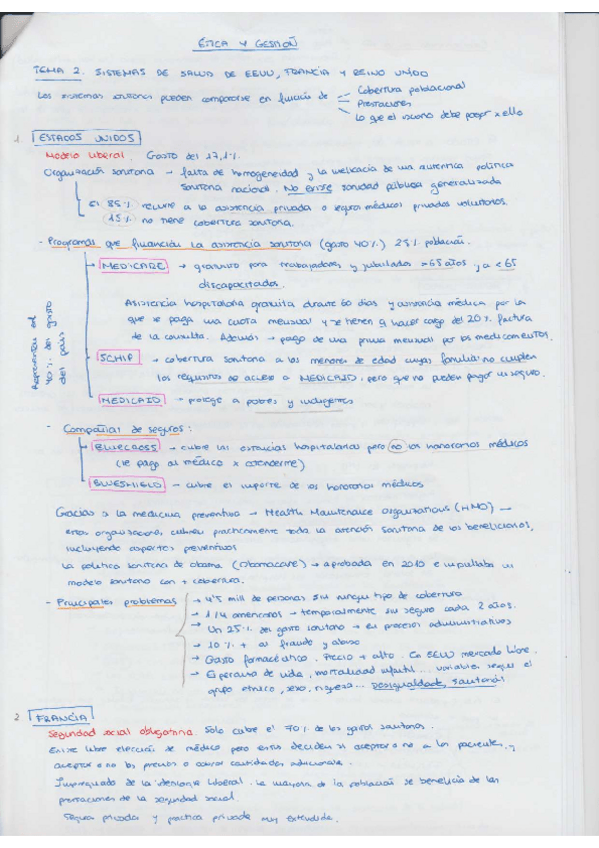 ÉTICA Y GESTIÓN
TEMA 2. SISTEMAS DE SALUD DE EEUU, FRANCIA Y REINO UNIDO
Los sistemas sanitarios pueden compararse en función de
Cobertura poblacional
Prestaciones
Lo que el usuario debe pagar x ello
1. ESTADOS UNIDOS
Modelo liberal. Gasto del 17,1%.
Organización sanitaria → falta de homogeneidad y la ineficacia de una autentica política
sanitaria nacional. No existe sanidad pública generalizada
El 85% recurre a la asistencia privada o seguros médicos privados voluntarios.
15% no tiene cobertura sanitaria.
- Programas que financian la asistencia sanitaria (gasto 40%) 25% población.
Representan el 40% del gasto del país
MEDICARE → gratuito para trabajadores y jubilados >65 años y a <65
discapacitados.
Asistencia hospitalaria gratuita durante 60 días y asistencia médica por la
que se paga una cuota mensual y se tienen q hacer cargo del 20% factura
de la consulta. Además → pago de una prima mensual por los medicamentos.
SCHIP → cobertura sanitaria a los menores de edad cuyas familias no cumplen
los requisitos de acceso a MEDICAID, pero que no pueden pagar un seguro.
MEDICAID → protege a pobres y indigentes
- Compañías de seguros:
BLUECROSS → cubre las estancias hospitalarias pero no los honorarios médicos
(le pago al médico x atenderme)
BLUESHIELD → cubre el importe de los honorarios médicos
Gracias a la medicina preventiva → Health Maintenance Organizations (HMO) →
estas organizaciones, cubren prácticamente toda la atención sanitaria de los beneficiarios,
incluyendo aspectos preventivos
La política sanitaria de Obama (Obamacare) → aprobada en 2010 e impulsaba un
modelo sanitario con + cobertura.
- Principales problemas
→ 45 mill de personas sin ningún tipo de cobertura
→ 1/4 americanos → temporalmente sin seguro cada 2 años.
→ Un 25% del gasto sanitario → en procesos administrativos
→ 10% + al fraude y abuso
→ Gasto farmacéutico. Precio + alto. En EEUU mercado libre.
→ Esperanza de vida, mortalidad infantil... variables según el
grupo étnico, sexo, riqueza... desigualdades sanitarias.
2. FRANCIA
Seguridad social obligatoria. Sólo cubre el 70% de los gastos sanitarios.
Existe libre elección de médico pero estos deciden si aceptar o no a los pacientes, y
aceptar o no los precios o cobrar cantidades adicionales.
Impregnado de la ideología liberal. La mayoría de la población se beneficia de las
prestaciones de la seguridad social.
privada y práctica privada muy extendida.